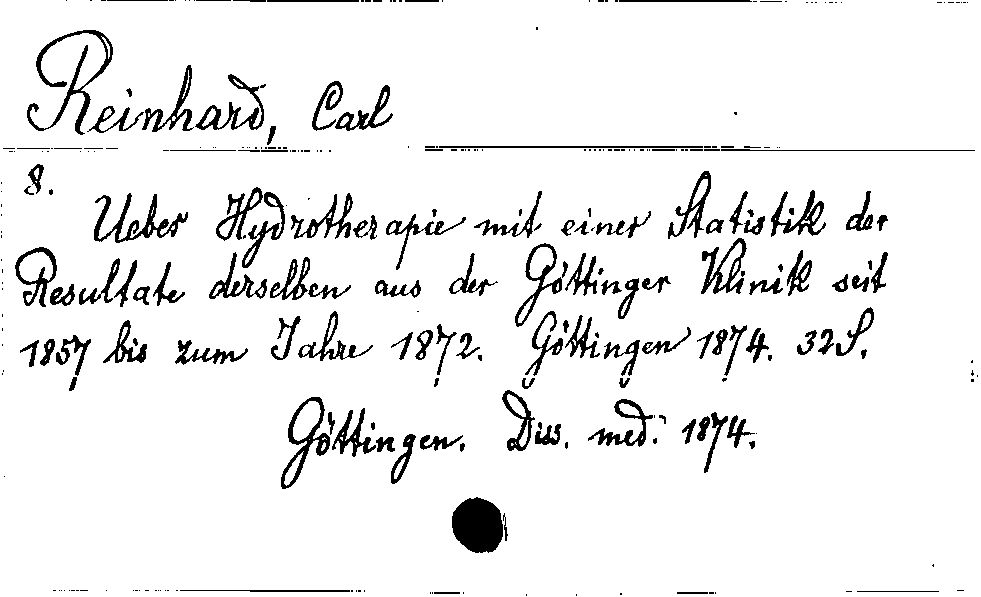 Reinhard, Carl
8.
Ueber Hydrotherapie mit einer Statistik der
Resultate derselben aus der Göttinger Klinik seit
1857 bis zum Jahre 1872. Göttingen 1874. 32S.
Göttingen. Diss. med. 1874.